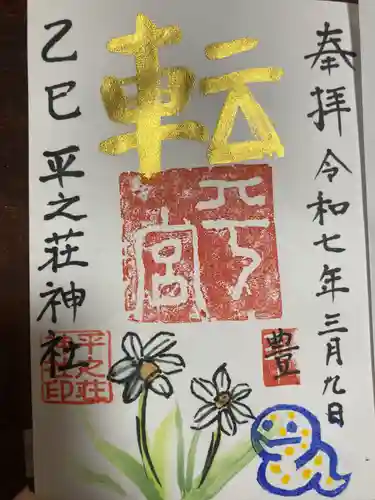 奉拝 令和七年三月九日
転
豊
乙巳 平之荘神社
平之荘
神社印